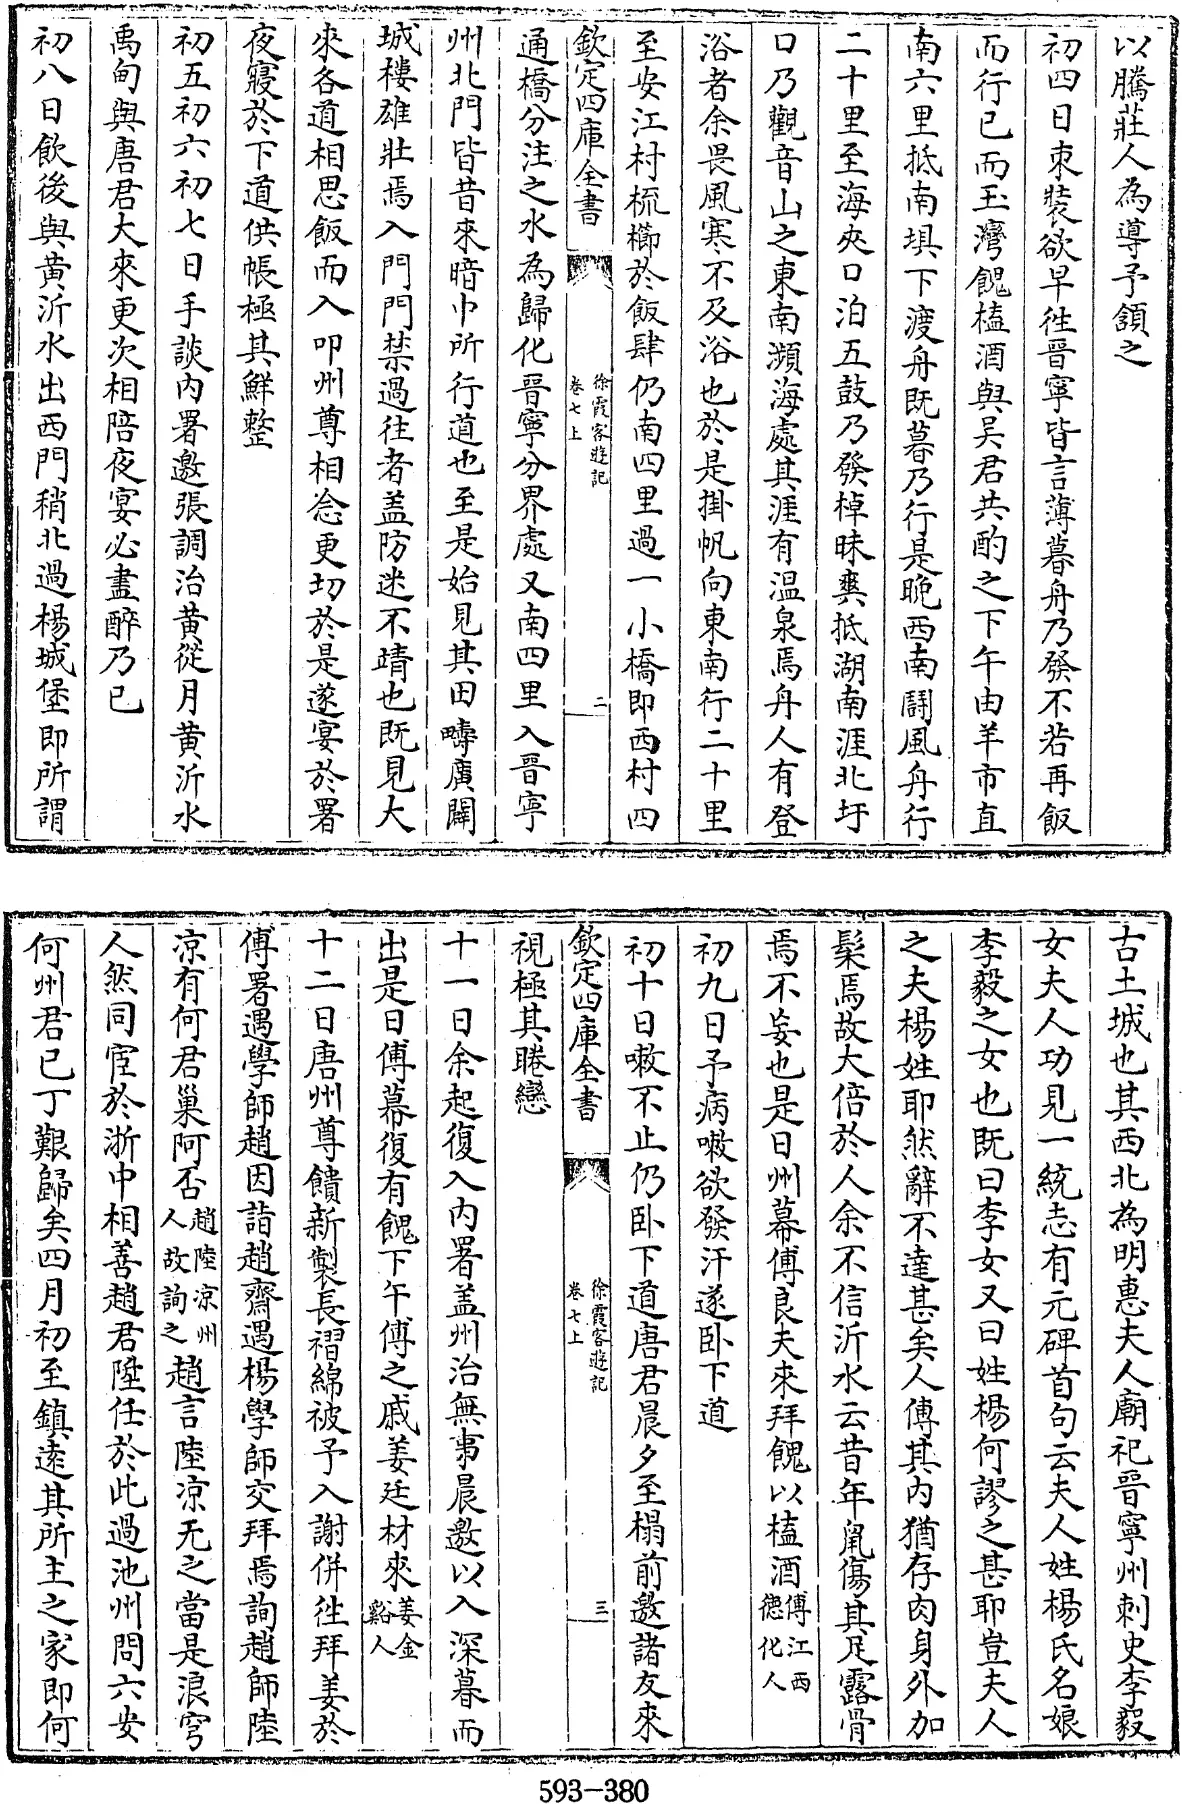 以騰莊人為導予頷之
初四日束裝欲早往晉寧皆言薄暮舟乃發不若再飯
而行已而玉灣餽榼酒與吴君共酌之下午由羊市直
南六里抵南垻下渡舟既暮乃行是晩西南鬬風舟行
二十里至海夾口泊五鼓乃發棹昧爽抵湖南涯北圩
口乃觀音山之東南瀕海處其涯有温泉焉舟人有登
浴者余畏風寒不及浴也於是掛帆向東南行二十里
至安江村梳櫛於飯肆仍南四里過一小橋即西村四
欽定四庫全書
徐霞客遊記
卷七上
二
通橋分注之水為歸化晉寧分界處又南四里入晉寧
州北門皆昔來暗中所行道也至是始見其田疇廣闢
城樓雄壯焉入門門禁過往者盖防迷不靖也既見大
來各道相思飯而入叩州尊相念更切於是遂宴於署
夜寢於下道供帳極其鮮整
初五初六初七日手談内署邀張調治黄從月黄沂水
禹甸與唐君大來更次相陪夜宴必盡醉乃已
初八日飲後與黄沂水出西門稍北過楊城堡即所謂
古土城也其西北為明惠夫人廟祀晉寧州刺史李毅
女夫人功見一統志有元碑首句云夫人姓楊氏名娘
李毅之女也既曰李女又曰姓楊何謬之甚耶豈夫人
之夫楊姓耶然辭不達甚矣人傳其内猶存肉身外加
髹焉故大倍於人余不信沂水云昔年鼠傷其足露骨
焉不妄也是日州幕傅良夫來拜餽以榼酒傅江西
德化人
初九日予病嗽欲發汗遂卧下道
初十日嗽不止仍卧下道唐君晨夕至榻前邀諸友來
欽定四庫全書
徐霞客遊記
卷七上
三
視極其睠戀
十一日余起復入内署盖州治無事晨邀以入深暮而
出是日傅幕復有餽下午傅之戚姜廷材來姜金
谿人
十二日唐州尊饋新製長褶綿被予入謝併往拜姜於
傅署遇學師趙因詣趙齋遇楊學師交拜焉詢趙師陸
凉有何君巢阿否趙陸凉州
人故詢之趙言陸凉无之當是浪穹
人然同宦於浙中相善趙君陞任於此過池州問六安
何州君已丁艱歸矣四月初至鎮逺其所主之家即何
593-380